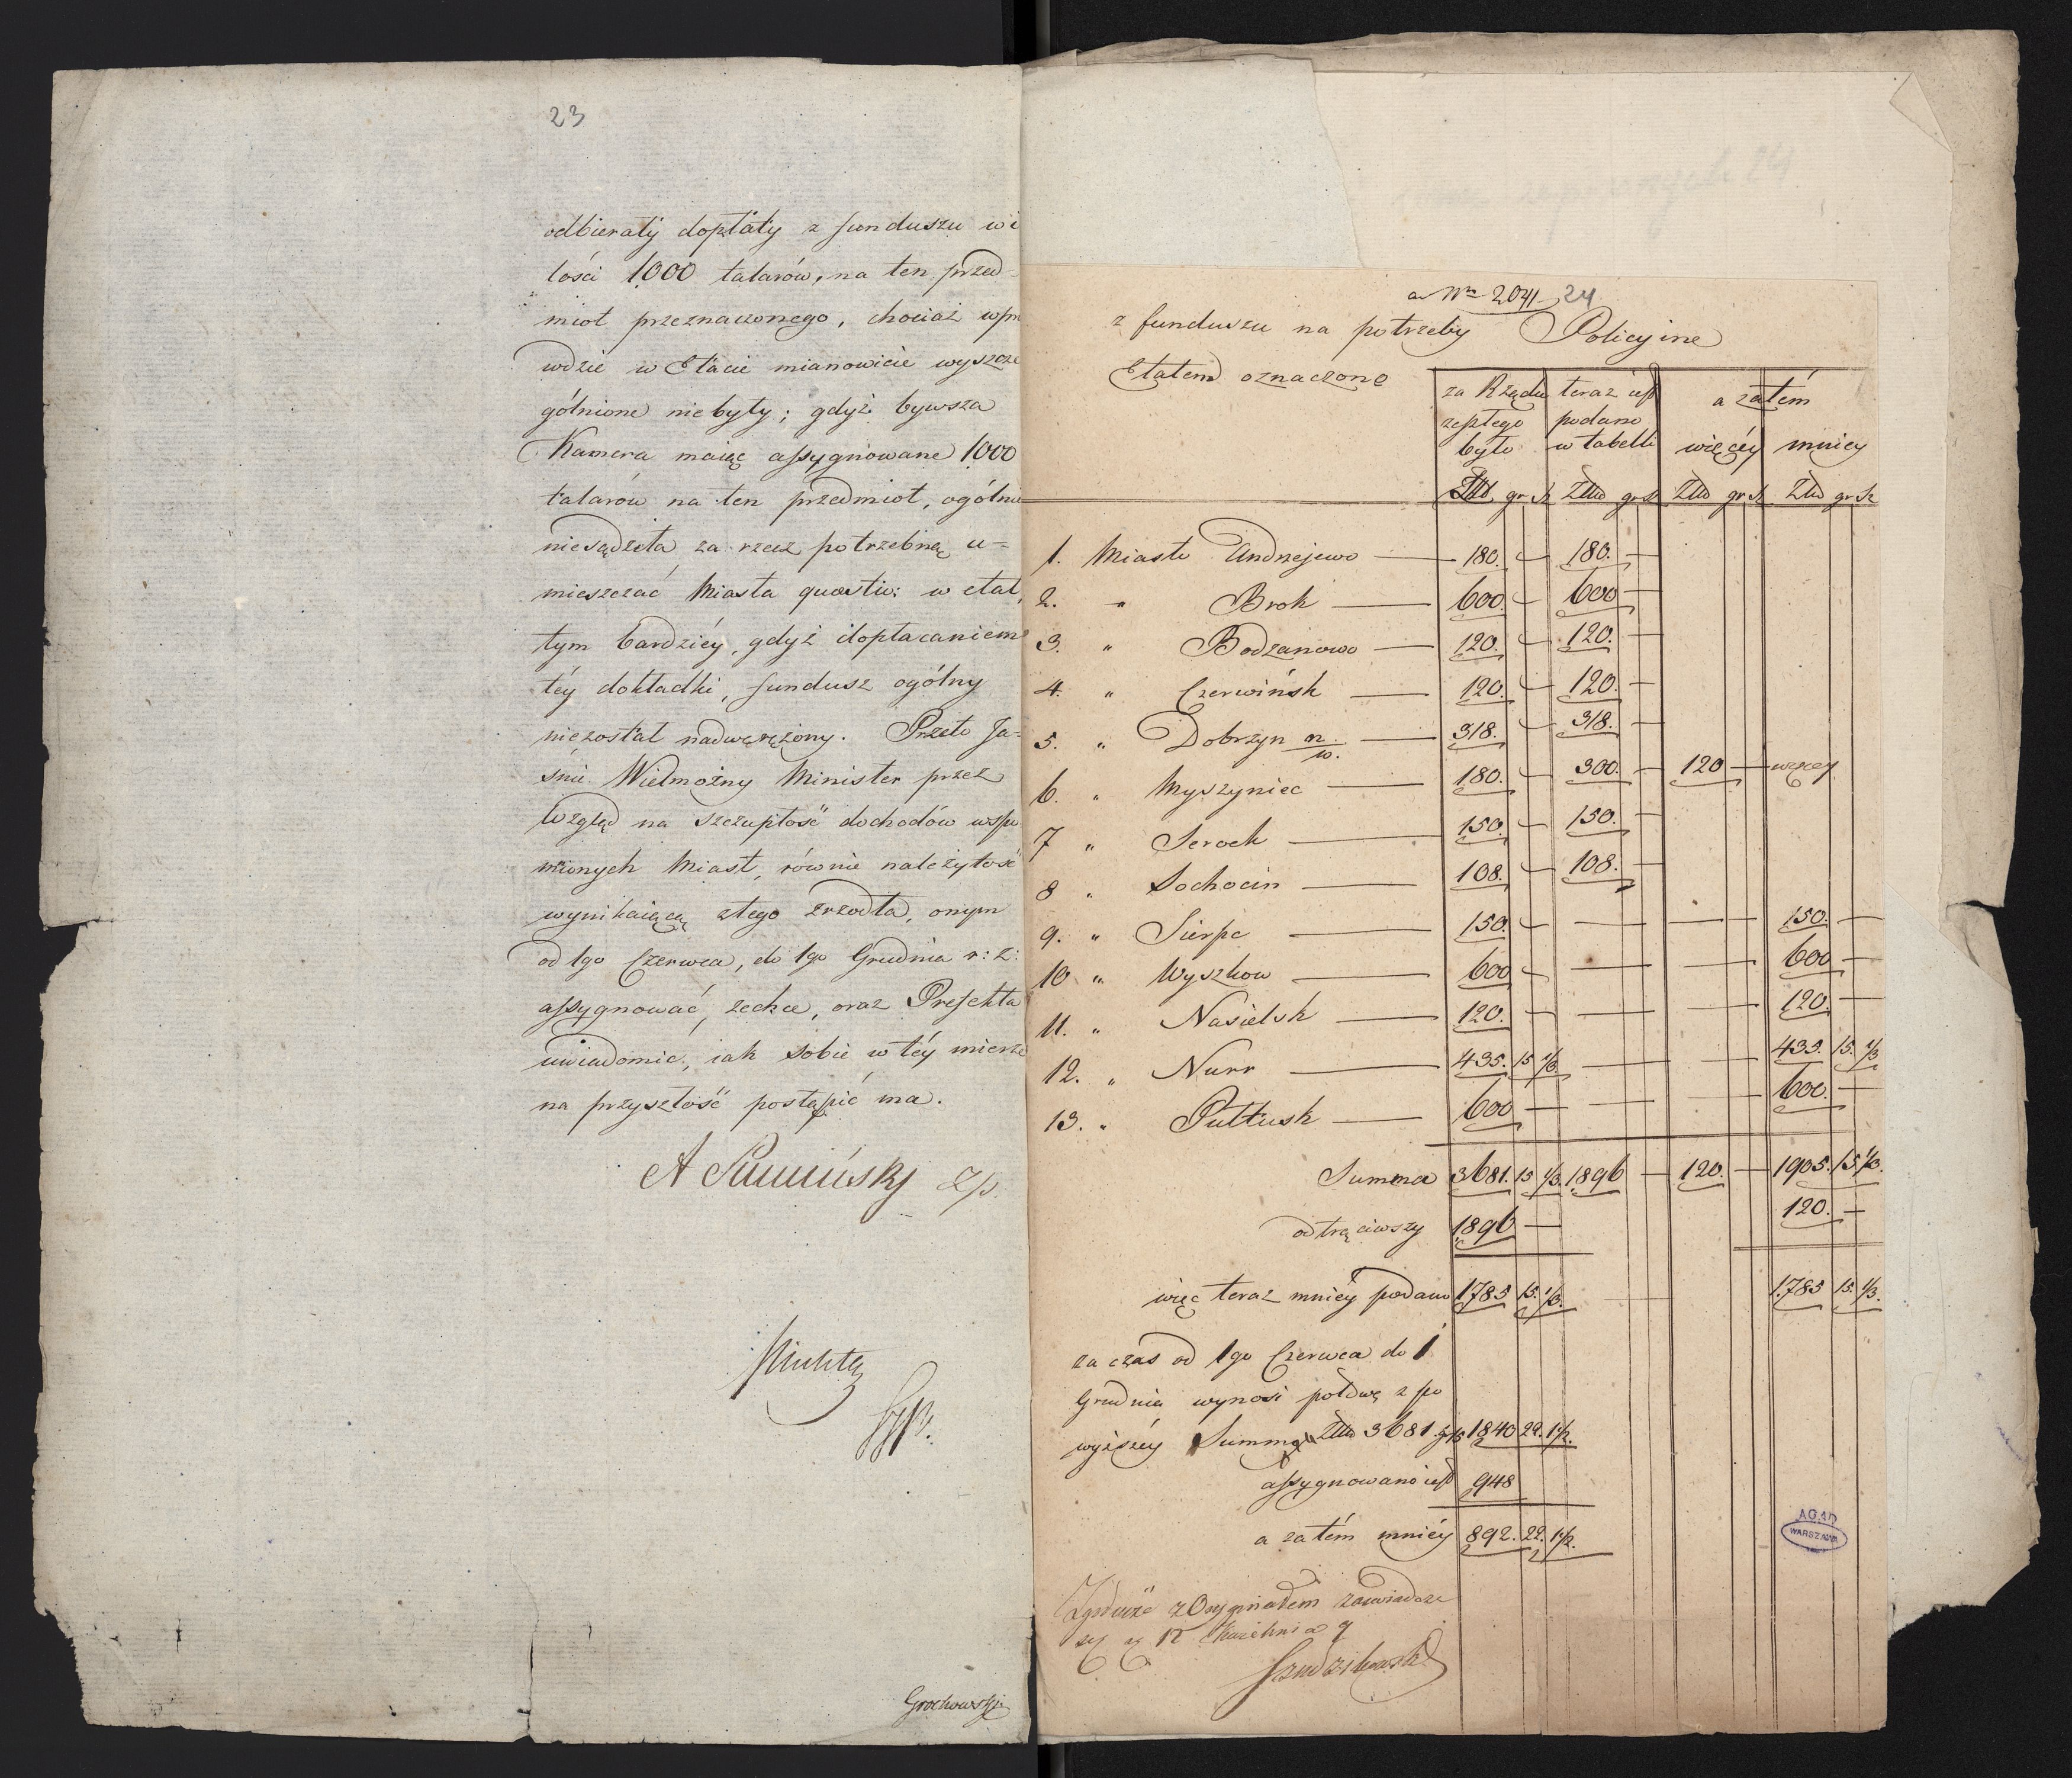 23
odbierały dopłaty z funduszu w i
lości 1000 talarów, na ten przed-
miot przeznaczonego, chociaż wpra
wdzie w Etacie mianowicie wyszcze
gólnione niebyły; gdyż bywsza
Kamera maiąc assygnowane 1000
talarów na ten przedmiot, ogólnie
niesądziła za rzecz potrzebną u-
mieszczać Miasta quaestio: w etat,
tym bardziéy, gdyż dopłacaniem
téy dokładki, fundusz ogólny
niezostał nadwerężony. Przeto Ja-
śnie Wielmożny Minister przez
Wzgląd na szczupłość dochodów wspo
mnionych Miast, równie należytość
wynikaiącą ztego zrzodła, onym
od 1go Czerwca, do 1go Grudnia r: z:
assygnować zechce, oraz Prefekta
uwiadomić, iak sobie w téy mierze
na przyszłość postąpić ma.
zp.
Grochowski
a Nro 2041 24
z funduszu na potrzeby Policyine
Etatem oznaczone
za Rządu zeszłego było
teraz iest podano w tabelli
a zatém
więcéy
mniéy
Złtt gr sz Złtt gr sz Złtt gr sz Złtt gr sz
1. Miasto Andrzejewo — 180. — 180. —
2. " Brok — 600. — 600 —
3. " Bodzanowo — 120. — 120. —
4. " Czerwińsk — 120. — 120. —
5. " Dobrzyn n./w. — 318. — 318. —
6. " Myszyniec — 180. — 300. — 120 — więcey
7 " Serock — 150. — 150. —
8 " Sochocin — 108. — 108. —
9. " Sierpc — 150. — — — 150. —
10 " Wyszkow — 600 — — — 600 —
11. " Nasielsk — 120. — — — 120. —
12. " Nurr — 435. 15 1/3. — — 435. 15. 1/3
13. " Pułtusk — 600 — — — 600. —
Summa 3681. 15 1/3. 1896 — 120. — 1905. 15 1/3.
120. —
odtrąciwszy 1896 —
więc teraz mniéy podano 1785 15. 1/3. — 1785 15. 1/3.
za czas od 1go Czerwca do 1
Grudnia wynosi połowę z po
wyższéy Summy Złtt 3681 g 15 1840 22. 1/2.
assygnowano iest 948
a zatém mniéy 892. 22. 1/2.
AGAD
WARSZAWA